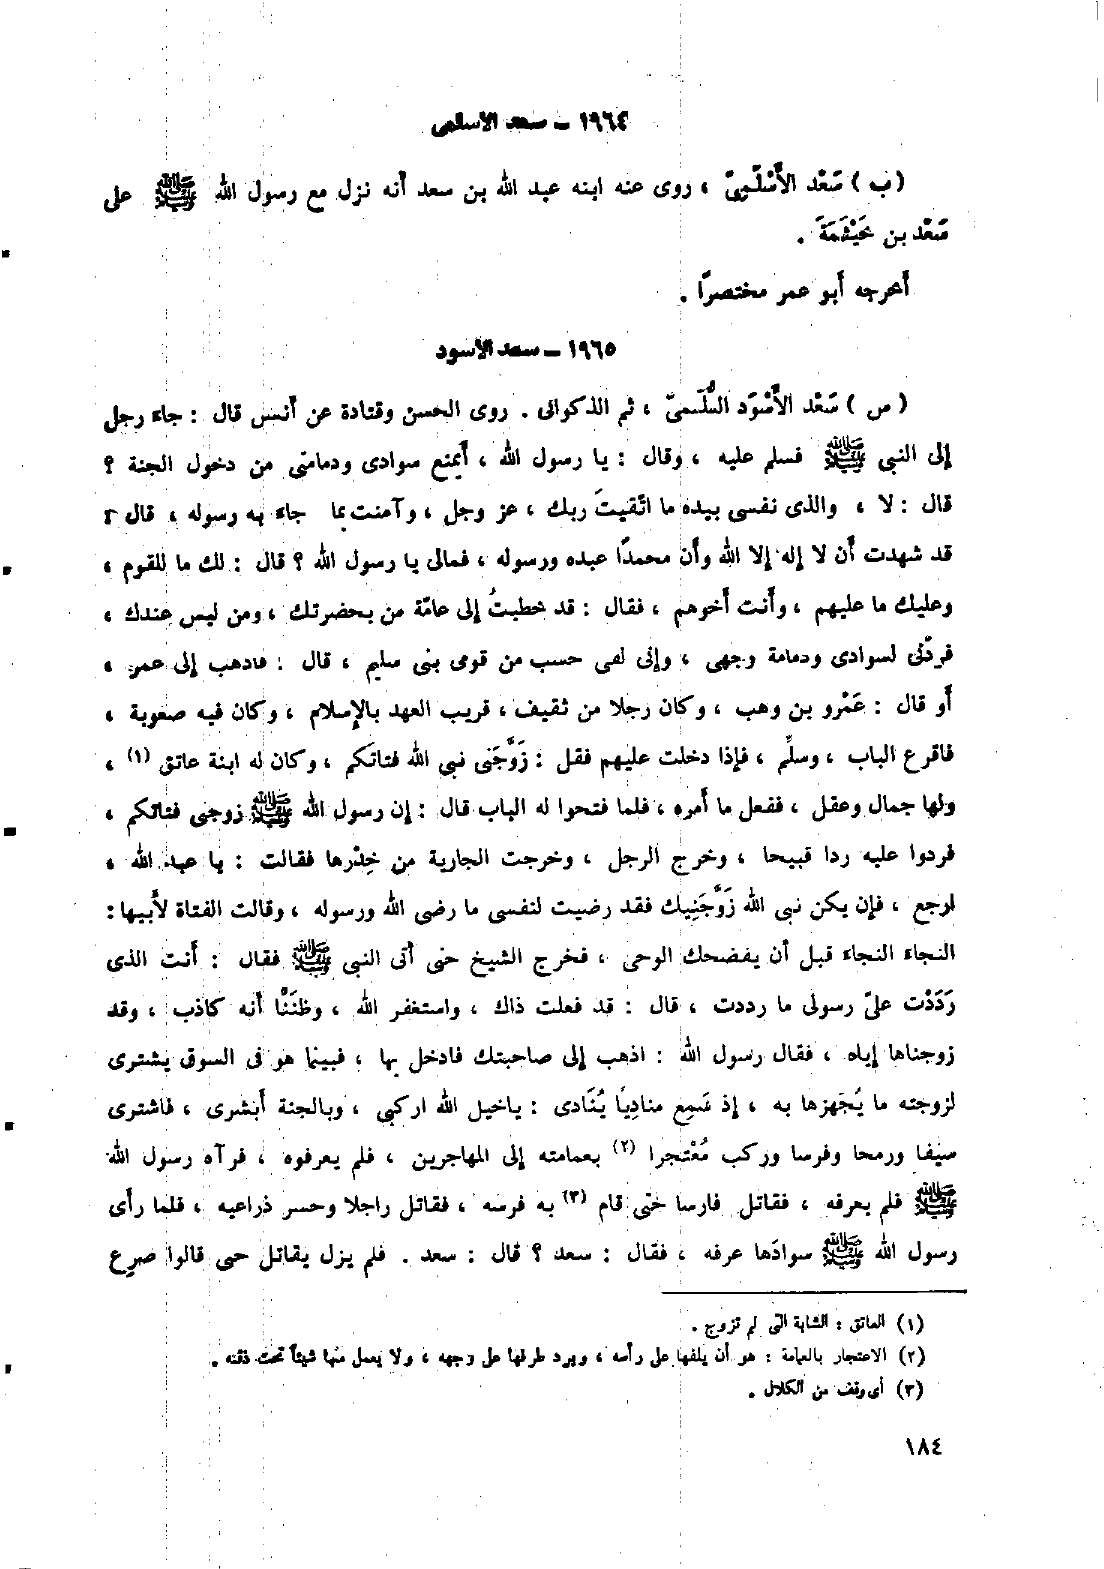 ١٩٦٤ ــ سعد الأسلمى
(ب) سَعْد الأَسْلَمِىّ ، روى عنه ابنه عبد الله بن سعد أنه نزل مع رسول الله ﷺ على
سَعْد بن خَيْثَمَةَ .
أخرجه أبو عمر مختصرًا .
١٩٦٥ ــ سعد الأسود
(س) سَعْد الأَسْوَد السُّلَمىّ ، ثم الذكوانى . روى الحسن وقتادة عن أنس قال : جاء رجل
إلى النبى ﷺ فسلم عليه ، وقال : يا رسول الله ، أيمنع سوادى ودمامتى من دخول الجنة ؟
قال : لا ، والذى نفسى بيده ما اتّقيتَ ربك ، عز وجل ، وآمنت بما جاء به رسوله ، قال :
قد شهدت أن لا إله إلا الله وأن محمدًا عبده ورسوله ، فمالى يا رسول الله ؟ قال : لك ما للقوم ،
وعليك ما عليهم ، وأنت أخوهم ، فقال : قد خطبتُ إلى عامّة من بحضرتك ، ومن ليس عندك ،
فردّنى لسوادى ودمامة وجهى ، وإنى لفى حسب من قومى بنى سليم ، قال : فاذهب إلى عمر ،
أو قال : عَمْرو بن وهب ، وكان رجلا من ثقيف ، قريب العهد بالإسلام ، وكان فيه صعوبة ،
فاقرع الباب ، وسلِّم ، فإذا دخلت عليهم فقل : زَوَّجَنى نبى الله فتاتَكم ، وكان له ابنة عاتق (١) ،
ولها جمال وعقل ، ففعل ما أمره ، فلما فتحوا له الباب قال : إن رسول الله ﷺ زوجنى فتاتكم ،
فردوا عليه ردا قبيحا ، وخرج الرجل ، وخرجت الجارية من خِدْرها فقالت : يا عبد الله ،
ارجع ، فإن يكن نبى الله زَوَّجَنِيك فقد رضيت لنفسى ما رضى الله ورسوله ، وقالت الفتاة لأبيها :
النجاء النجاء قبل أن يفضحك الوحى ، فخرج الشيخ حتى أتى النبى ﷺ فقال : أنت الذى
رَدَدْت علىّ رسولى ما رددت ، قال : قد فعلت ذاك ، واستغفر الله ، وظَنَنَّا أنه كاذب ، وقد
زوجناها إياه ، فقال رسول الله : اذهب إلى صاحبتك فادخل بها ، فبينما هو فى السوق يشترى
لزوجته ما يُجَهزها به ، إذ سَمِع منادِيًا يُنَادى : ياخيل الله اركبى ، وبالجنة أبشرى ، فاشترى
سيفا ورمحا وفرسا وركب مُعْتَجرا (٢) بعمامته إلى المهاجرين ، فلم يعرفوه ، فرآه رسول الله
ﷺ فلم يعرفه ، فقاتل فارسا حتى قام (٣) به فرسه ، فقاتل راجلا وحسر ذراعيه ، فلما رأى
رسول الله ﷺ سوادَها عرفه ، فقال : سعد ؟ قال : سعد . فلم يزل يقاتل حتى قالوا صرع
(١) العاتق : الشابة التى لم تزوج .
(٢) الاعتجار بالعمامة : هو أن يلفها على رأسه ، ويرد طرفها على وجهه ، ولا يعمل منها شيئاً تحت ذقنه .
(٣) أى وقف من الكلال .
١٨٤